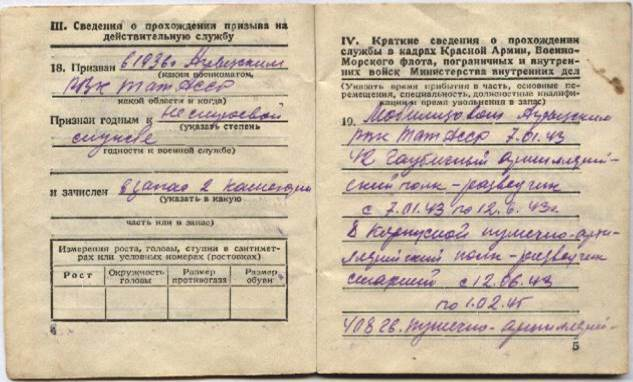 III. Сведения о прохождении призыва на
действительную службу
18. Призван в 1936г
(каким военкоматом,
РВК ТатАССР
какой области и когда)
Признан годным к Нестроевой
(указать степень
службе
годности к военной службе)
и зачислен в запас 2 категории
(указать в какую
часть или в запас)
Измерения роста, головы, ступни в сантимет-
рах или условных номерах (ростовках)
Рост Окружность головы Размер противогаза Размер обуви
4
IV. Краткие сведения о прохождении
службы в кадрах Красной Армии, Военно-
Морского флота, пограничных и внутрен-
них войск Министерства внутренних дел
(Указать время прибытия в часть, основные пе-
ремещения, специальность, должностные квалифи-
кации и время увольнения в запас)
19. Мобилизован
РВК ТатАССР 7.01.43
42 гаубичный артиллерий-
ский полк - разведчик
с 7.01.43 по 12.6.43г.
8 Корпусной пушечно-арти-
ллерийский полк - разведчик
старший с 12.06.43
по 1.02.45
408 гв. пушечно-артиллерий-
5